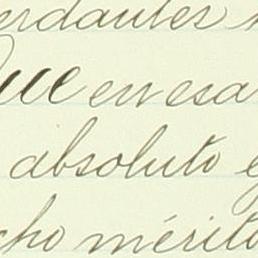 erdautes
Que en esa
absoluto e
cho mérito